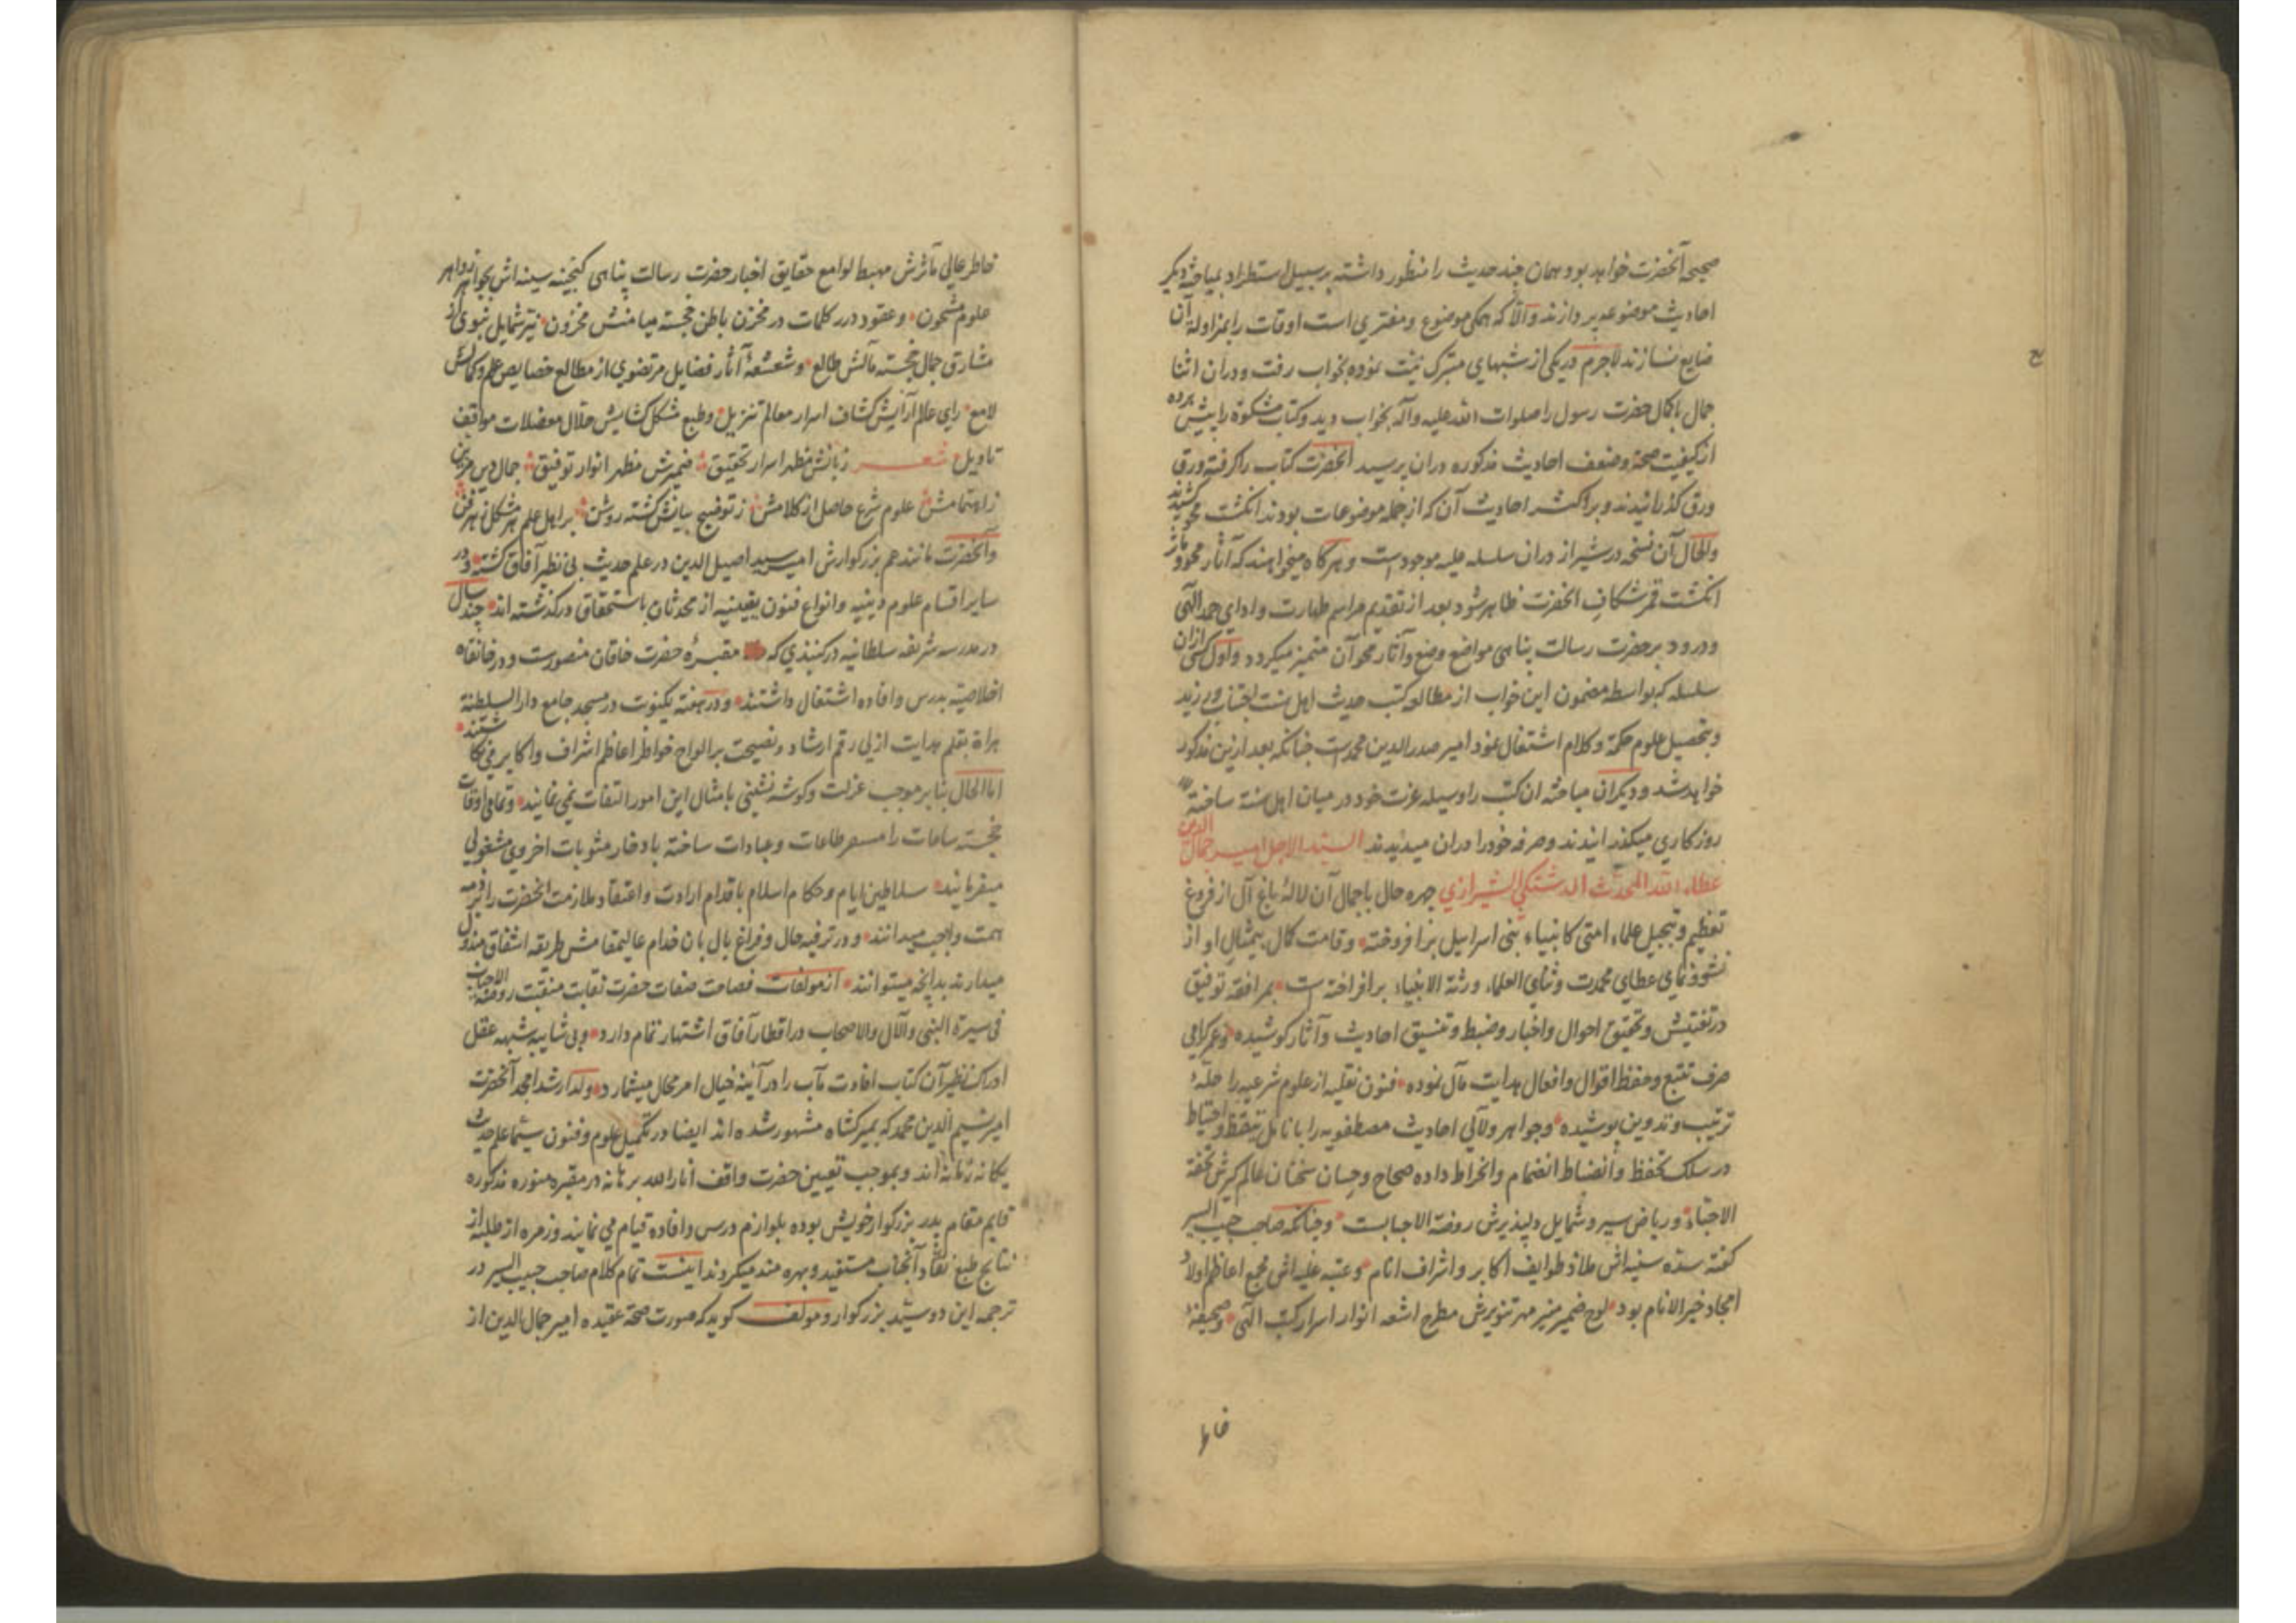 صحیح آنحضرت خواهد بود و همان چند حدیث را منظور داشته بر سبیل استطراد بمباحثه دیگر
احادیث موضوعه پردازند و الّا که همکی موضوع و مفتری است اوقات را بمزاوله آن
ضایع نسازند لاجرم در یکی از شبهای متبرک نیت نموده بخواب رفت و در ان اثنا
جمال با کمال حضرت رسول را صلوات الله علیه و آله بخواب دید و کتاب مشکوة را پیش برده
از کیفیت صحة و ضعف احادیث مذکوره دران پرسید آنحضرت کتاب را کرفته ورق
ورق کذرانیدند و بر اکثر احادیث آن که از جمله موضوعات بودند انکشت محو کشیدند
والحال آن نسخه در شیراز دران سلسله علیه موجود است و هر کاه میخواهند که آثار محو و تاثر
انکشت قمر شکاف آنحضرت ظاهر شود بعد از تقدیم مراسم طهارت و ادای حمد الهی
و درود بر حضرت رسالت پناهی مواضع وضع و آثار محو آن متمیز میکردد و اول کسی ازان
سلسله که بواسطه مضمون این خواب از مطالعه کتب حدیث اهل سنت اجتناب ورزید
و بتحصیل علوم حکمة و کلام اشتغال نمود امیر صدر الدین محمد است چنانکه بعد ازین مذکور
خواهد شد و دیکران مباحثه ان کتب را وسیله عزت خود در میان اهل سنة ساخته
روزکاری میکذرانیدند و صرفه خود را دران میدیدند السید الاجل امیر جمال الدین
عطاء الله المحدث الدشتکی الشیرازی چهره حال با جمال آن لالهٔ باغ آل از فروغ
تعظیم و تبجیل علماء امتی کانبیاء بنی اسرائیل برافروخته و قامت کمال بیمثال او از
نشو و نمای عطای محمدت و ثنای العلماء ورثة الانبیاء برافراخته است بمرافقه توفیق
در تفتیش و تحقیق احوال و اخبار و ضبط و تنسیق احادیث و آثار کوشیده و عمر کرامی
صرف تتبع و حفظ اقوال و افعال هدایت مآل نموده فنون نقلیه از علوم شرعیه را حلّهٔ
ترتیب و تدوین پوشیده و جواهر و لآلی احادیث مصطفویه را بانامل تیقظ و احتیاط
در سلک تحفظ و انضباط انضمام و انخراط داده صحاح و حسان سخنان عالم کیرش تحفة
الاحباء و ریاض سیر و شمایل دلپذیرش روضة الاحبابست و چنانکه صاحب حبیب السیر
کفته سده سنیه اش ملاذ طوایف اکابر و اشراف انام و عتبه علیه اش مجمع اعاظم اولاد
امجاد خیر الانام بود لوح ضمیر منیر مهر تنویرش مطرح اشعه انوار اسرار کتب الهی و صحیفهٔ
خاطر
خاطر عالی مآثرش مهبط لوامع حقایق اخبار حضرت رسالت پناهی کنجینه سینه اش بجواهر زواهر
علوم مشحون و عقود درر کلمات در مخزن باطن خجسته میامنش مخزون نیّر شمایل نبوی از
مشارق جمال خجسته مآلش طالع و شعشعهٔ آثار فضایل مرتضوی از مطالع خصایص علم و کمالش
لامع رای عالم آرایش کشاف اسرار معالم تنزیل و طبع مشکل کشایش حلال معضلات مواقف
تاویل شعر زبانش مظهر اسرار تحقیق ضمیرش مظهر انوار توفیق جمال دین مزین
ز اهتمامش علوم شرع حاصل از کلامش ز توضیح بیانش کشته روشن بر اهل علم هر مشکل ز هر فن
و آنحضرت مانند عم بزرکوارش امیر سید اصیل الدین در علم حدیث بی نظیر آفاق کشته و در
سایر اقسام علوم دینیه و انواع فنون یقینیه از محدثان باستحقاق درکذشته اند چند سال
در مدرسه شریفه سلطانیه در کنبذی که مقبرهٔ حضرت خاقان منصورست و در خانقاه
اخلاصیّه بدرس و افاده اشتغال داشتند و در هفته یکنوبت در مسجد جامع دار السلطنة
هراة بقلم هدایت ازلی رقم ارشاد و نصیحت بر الواح خواطر اعاظم اشراف و اکابر می نکاشتند
اما الحال بنا بر موجب عزلت و کوشه نشینی بامثال این امور التفات نمی نمایند و تمامی اوقات
خجسته ساعات را مصروف طاعات و عبادات ساخته بادخار مثوبات اخروی مشغولی
میفرمایند سلاطین ایام و حکام اسلام باقدام ارادت و اعتقاد ملازمت آنحضرت را بر ذمه
همت واجب میدانند و در ترفیه حال و فراغ بال بان خدام عالیمقامش طریقه اشفاق مبذول
میدارند بدانچه میتوانند از مولفات فصاحت صفات حضرت نقابت منقبت روضة الاحباب
فی سیرة النبی والآل والاصحاب در اقطار آفاق اشتهار تمام دارد و بی شایبه شبهه عقل
ادراک نظیر آن کتاب افادت مآب را در آئینه خیال امر محال میشمارد و ولد ارشد امجد آنحضرت
امیر نسیم الدین محمد که بمیرکشاه مشهور شده اند ایضا در تکمیل علوم و فنون سیّما علم حدیث
یکانه زمانه اند و بموجب تعیین حضرت واقف انار الله برهانه در مقبره منوره مذکوره
قایم مقام پدر بزرکوار خویش بوده بلوازم درس و افاده قیام می نمایند و زمره از طلبه از
نتایج طبع نقّاد آنجناب مستفید و بهره مند میکردند اینست تمام کلام صاحب حبیب السیر در
ترجمه این دو سیّد بزرکوار و مولف کوید که صورت صحة عقیده امیر جمال الدین از